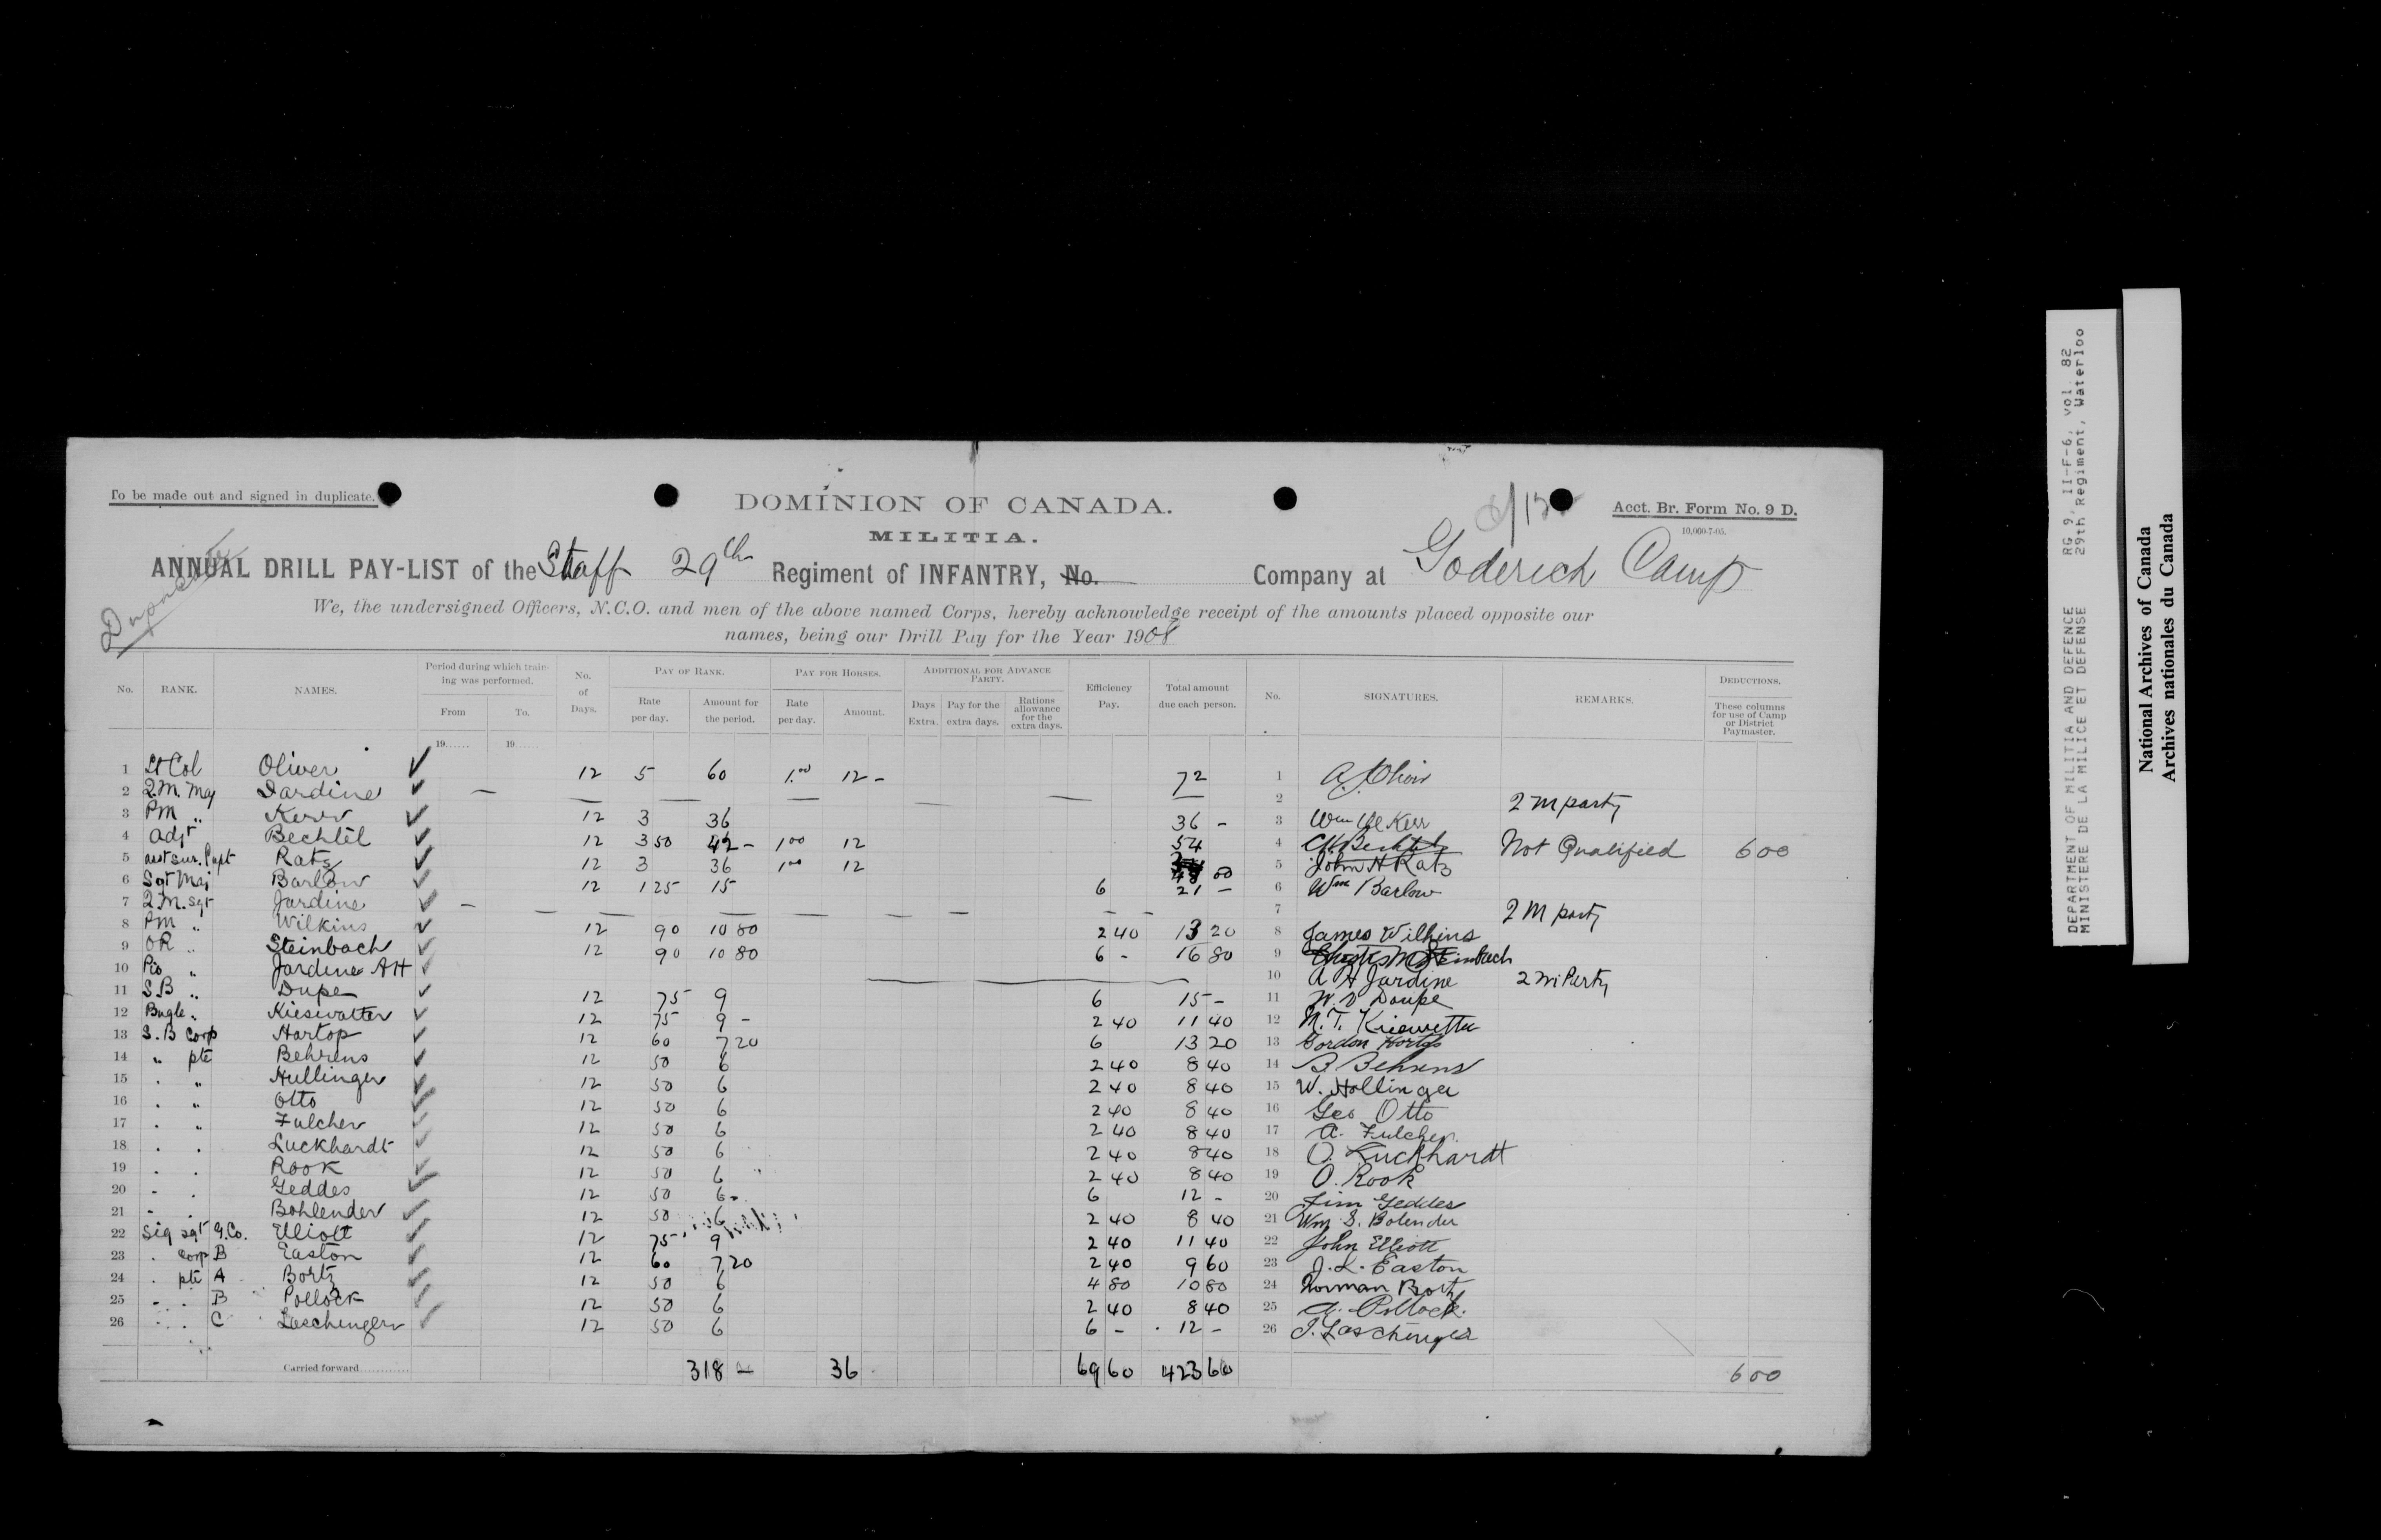 To be made out and signed in duplicate.
DOMINION OF CANADA.
Acct. Br. Form No. 9 D.
10,000-7-05.
MILITIA.
ANNUAL DRILL PAY-LIST of the Staff 29th Regiment of INFANTRY, No. Company at Goderich Camp
We, the undersigned Officers, N.C.O. and men of the above named Corps, hereby acknowledge receipt of the amounts placed opposite our
names, being our Drill Pay for the Year 1908
No. RANK. NAMES. Period during which training was performed. From To. No. of Days. PAY OF RANK. Rate per day. Amount for the period. PAY FOR HORSES. Rate per day. Amount. ADDITIONAL FOR ADVANCE PARTY. Days Extra. Pay for the extra days. Rations allowance for the extra days. Efficiency Pay. Total amount due each person. No. SIGNATURES. REMARKS. DEDUCTIONS. These columns for use of Camp or District Paymaster.
19...... 19......
1 Lt Col Oliver ✓ 12 5 60 1.00 12 - 72 1 A. Oliver
2 Q.M. Maj Jardine ✓ — 2 Q M party
3 PM " Kerr ✓ 12 3 36 36 - 3 Wm Kerr
4 Adjt Bechtel ✓ 12 3 50 42 - 1 00 12 54 4 Bechtel Not Qualified 6 00
5 asst sur. Capt Ratz ✓ 12 3 36 1 00 12 48 00 5 John H Ratz
6 Sgt Maj Barlow ✓ 12 1 25 15 6 21 - 6 Wm Barlow
7 Q.M. Sgt Jardine ✓ — 7 Q M party
8 PM " Wilkins ✓ 12 90 10 80 2 40 13 20 8 James Wilkins
9 OR " Steinbach ✓ 12 90 10 80 6 - 16 80 9 Steinbach
10 Pio " Jardine A H ✓ 10 A H Jardine Q M Party
11 S.B " Dupe ✓ 12 75 9 6 15 - 11 W. V Doupe
12 Bugle " Kieswatter ✓ 12 75 9 - 2 40 11 40 12 N. T. Kieswetter
13 S.B Corp Hartop ✓ 12 60 7 20 6 13 20 13 Gordon Hartop
14 " pte Behrens ✓ 12 50 6 2 40 8 40 14 B. Behrens
15 . " Hullinger ✓ 12 50 6 2 40 8 40 15 W. Hollinger
16 . " Otto ✓ 12 50 6 2 40 8 40 16 Geo Otto
17 . " Fulcher ✓ 12 50 6 2 40 8 40 17 A. Fulcher.
18 . . Luckhardt ✓ 12 50 6 2 40 8 40 18 O. Luckhardt
19 . . Rook ✓ 12 50 6 2 40 8 40 19 O. Rook
20 - . Geddes ✓ 12 50 6 - 6 12 - 20 Jim Geddes
21 - . Bohlender ✓ 12 50 6 2 40 8 40 21 Wm S. Bolender
22 Sig sgt G.Co. Elliott ✓ 12 75 9 2 40 11 40 22 John Elliott
23 . Corp B Easton ✓ 12 60 7 20 2 40 9 60 23 J. L. Easton
24 . pte A Bortz ✓ 12 50 6 4 80 10 80 24 Norman Bortz
25 - . B Pollock ✓ 12 50 6 2 40 8 40 25 A. Pollock.
26 . . C Laschinger ✓ 12 50 6 6 - 12 - 26 J. Laschinger
Carried forward............ 318 - 36 69 60 423 60 6 00
DEPARTMENT OF MILITIA AND DEFENCE RG 9, II-F-6, vol. 82
MINISTERE DE LA MILICE ET DEFENSE 29th Regiment, Waterloo
National Archives of Canada
Archives nationales du Canada